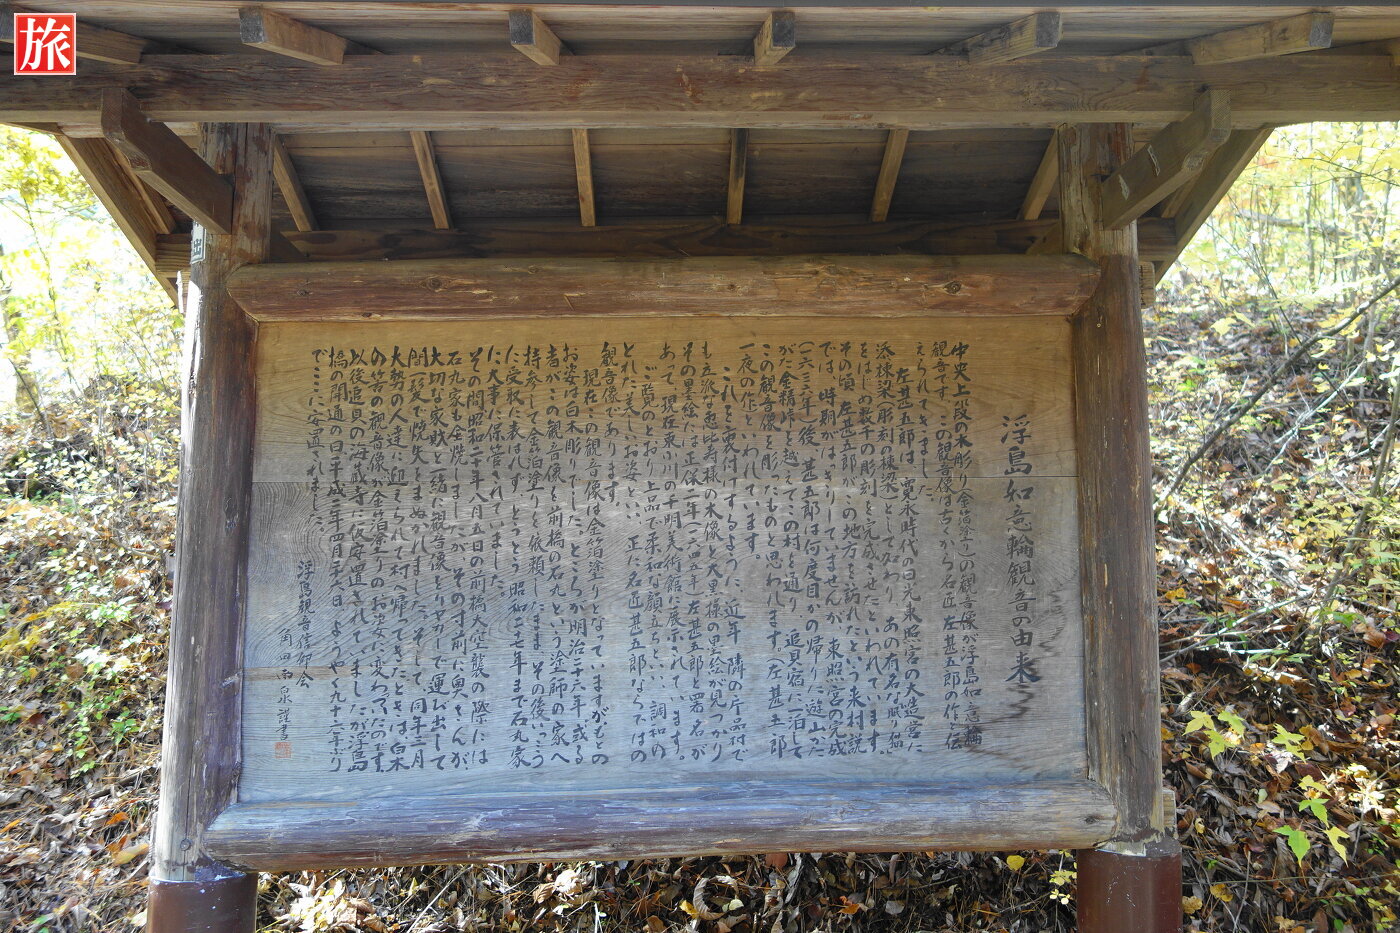 旅
浮島如意輪観音の由来
中央上段の木彫り(金箔塗り)の観音像が浮島如意輪
観音です。この観音像は古くから名匠 左甚五郎の作と伝
えられてきました。
左甚五郎は、寛永時代の日光東照宮の大造営に
添棟梁(彫刻の棟梁)として加わり、あの有名な眠り猫
をはじめ数千の彫刻を完成させたといわれています。
その頃、左甚五郎がこの地方を訪れたという来村説
では、時期がはっきりしていませんが、東照宮の完成
(一六三六年)後、甚五郎は何度目かの帰りに遊山かた
がた金精峠を越えてこの村を通り、追貝宿に一泊して
この観音像を彫ったものと思われます。(左甚五郎
一夜の作)といわれています。
これを裏付けするように、近年、隣の片品村で
も立派な恵比寿様の木像と大黒様の墨絵が見つかり
その墨絵には正保二年(一六四五年)左甚五郎の署名が
あって、現在東小川の千明美術館に展示されています。
ご覧のとおり上品で柔和な顔立ちといい、調和の
とれた美しいお姿といい、正に名匠甚五郎ならではの
観音像であります。
現在この観音像は金箔塗りとなっていますがもとの
お姿は白木彫りでした。ところが明治二十六年、或る
者がこの観音像を前橋の石丸という塗師の家へ
持参して金箔塗りを依頼したまま、その後いっこう
に受取に表はれず、とうとう昭和二十七年まで石丸家
に大事に保管されていました。
その間昭和二十年八月五日の前橋大空襲の際には
石丸家も全焼しましたが、その寸前に奥さんが、
大切な家財と一緒に観音像をリヤカーで運び出して
間一髪で焼失をまぬかれました。そして、同年三月
大勢の人達に迎えられて村へ帰ってきたときは、白木
の筈の観音像が金箔塗りのお姿に変わっていたのです。
以後追貝の海蔵寺に仮安置されていましたが浮島
橋の開通の日(平成三年四月二十六日)ようやく九十二年ぶり
でここに安置されました。
浮島観音信仰会
角田 泉 謹書